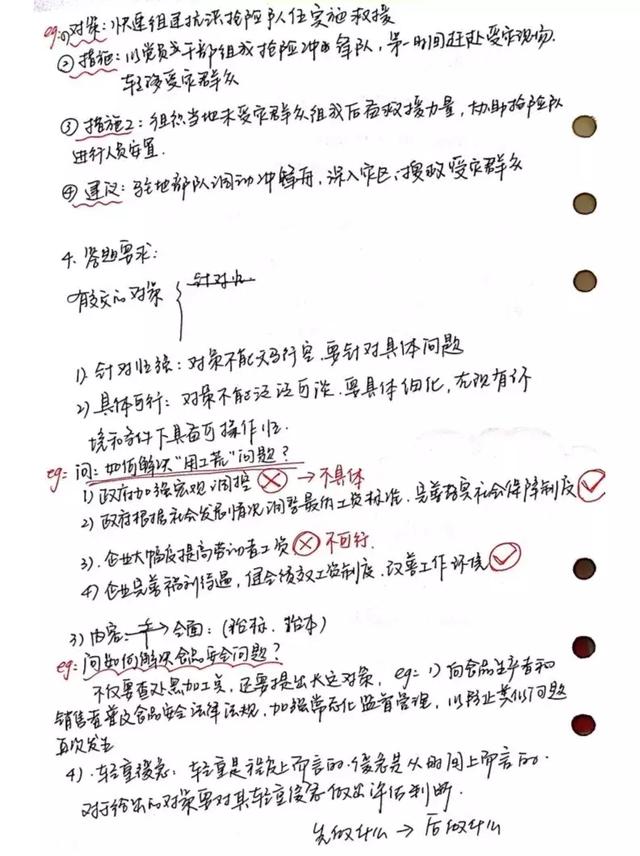 eg:① 对策:快速组建抗洪抢险队伍实施救援
② 措施1:以党员干部组成抢险冲锋队,第一时间赶赴受灾现场.
转移受灾群众
③ 措施2:组织当地未受灾群众组成后备救援力量,协助抢险队
进行人员安置.
④ 建议:驻地部队调动冲锋舟,深入灾区,搜救受灾群众
4. 答题要求:
有效的对策 { 针对性
1) 针对性强:对策不能天马行空.要针对具体问题
2) 具体可行:对策不能泛泛而谈.要具体细化,在现有环
境和条件下具备可操作性.
eg:问:如何解决“用工荒”问题?
1) 政府加强宏观调控 ⊗ → 不具体
2) 政府根据社会发展情况调整最低工资标准.完善落实社会保障制度 ✓
3). 企业大幅度提高劳动者工资 ⊗ 不可行.
4) 企业完善福利待遇,健全绩效工资制度.改善工作环境 ✓
3) 内容 全面:(治标.治本)
eg:问如何解决食品安全问题?
不仅要查处黑加工点,还要提出长远对策, eg:1) 向食品生产者和
销售者普及食品安全法律法规,加强常态化监督管理,以防止类似问题
再次发生
4). 轻重缓急:轻重是程度上而言的.缓急是从时间上而言的.
对于给出的对策要对其轻重缓急做出评估判断.
先做什么 → 后做什么